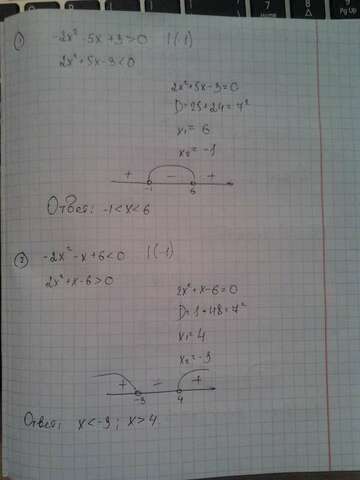 ① -2x² - 5x + 3 > 0 | (-1)
2x² + 5x - 3 < 0
2x² + 5x - 3 = 0
D = 25 + 24 = 7²
x₁ = 6
x₂ = -1
+ - +
-1 6
Ответ: -1 < x < 6
② -2x² - x + 6 < 0 | (-1)
2x² + x - 6 > 0
2x² + x - 6 = 0
D = 1 + 48 = 7²
x₁ = 4
x₂ = -3
+ - +
-3 4
Ответ: x < -3 ; x > 4